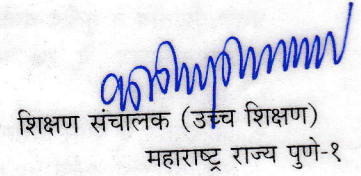 शिक्षण संचालक (उच्च शिक्षण)
महाराष्ट्र राज्य पुणे-१